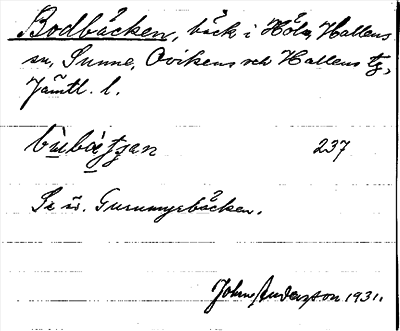 Bodbäcken, bäck i Hölm, Hallens
sn, Sunne, Ovikens och Hallens tg,
Jämtl. l.
bùbàtʂan 237
Se äv. Gururmyrbäcken.
John Anderzson 1931.